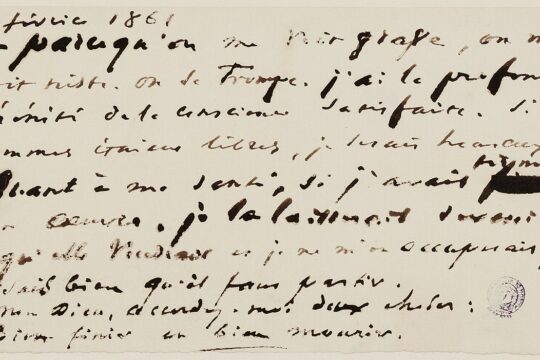 février 1861
parcequ'on me voit grave, on m
triste. on se trompe. j'ai la profon
sérénité de la conscience satisfaite. Si
hommes étaient libres, je serais heureux
Quant à ma santé, si j'avais
œuvre, je la laisserais devenir
qu'elle voudrait et je ne m'en occuperais
sait bien qu'il faut partir.
mon Dieu, accordez-moi deux choses :
bien finir et bien mourir.